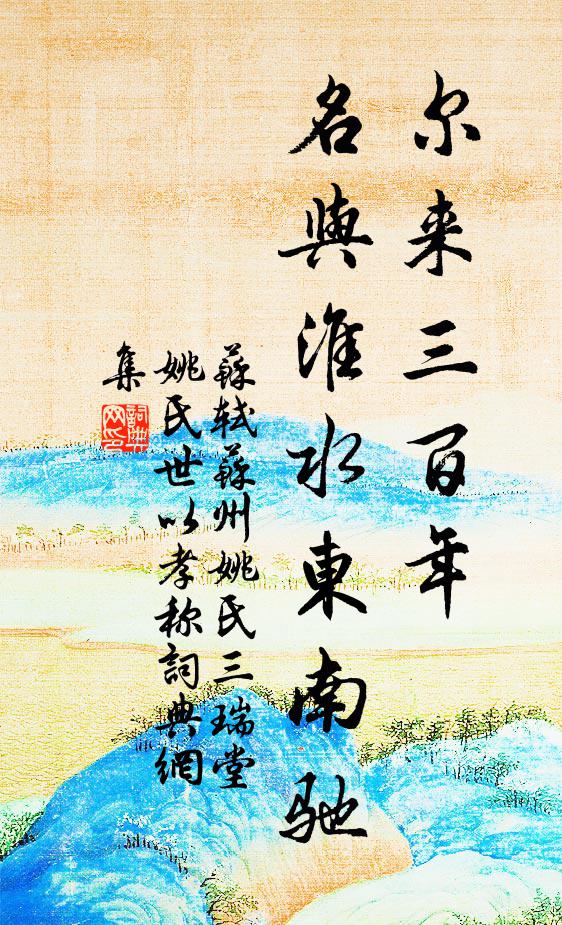 尔来三百年
名與淮水東南馳
蘇轼蘇州姚氏三瑞堂
姚氏世以孝称詞典網
集
詞典网印